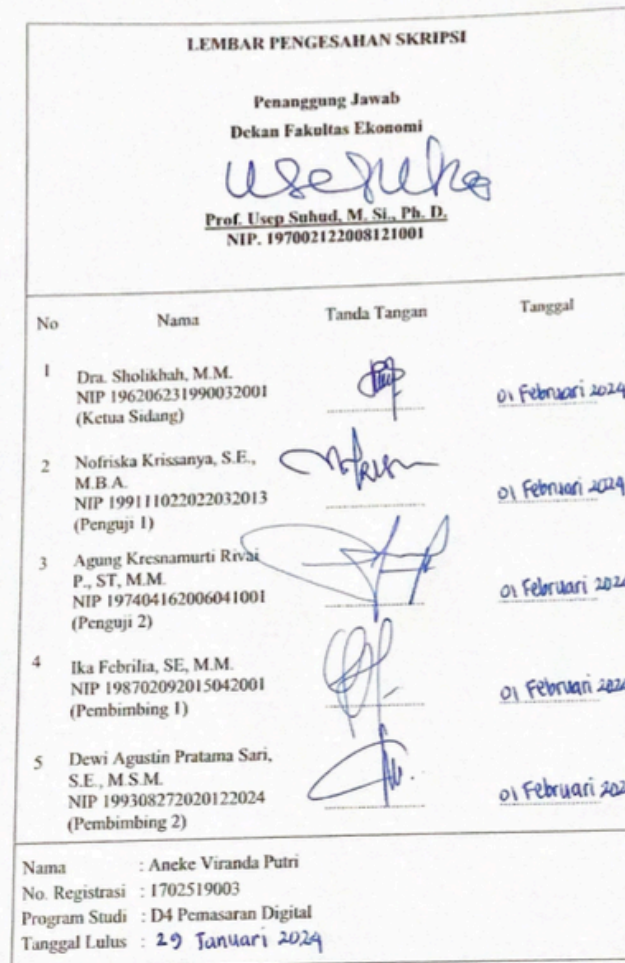 LEMBAR PENGESAHAN SKRIPSI
Penanggung Jawab
Dekan Fakultas Ekonomi
Prof. Usep Suhud, M. Si., Ph. D.
NIP. 197002122008121001
No Nama Tanda Tangan Tanggal
1 Dra. Sholikhah, M.M.
NIP 196206231990032001
(Ketua Sidang)
01 Februari 2024
2 Nofriska Krissanya, S.E.,
M.B.A.
NIP 199111022022032013
(Penguji 1)
01 Februari 2024
3 Agung Kresnamurti Rivai
P., ST, M.M.
NIP 197404162006041001
(Penguji 2)
01 Februari 202
4 Ika Febrilia, SE, M.M.
NIP 198702092015042001
(Pembimbing 1)
01 Februari 202
5 Dewi Agustin Pratama Sari,
S.E., M.S.M.
NIP 199308272020122024
(Pembimbing 2)
01 Februari 202
Nama : Aneke Viranda Putri
No. Registrasi : 1702519003
Program Studi : D4 Pemasaran Digital
Tanggal Lulus : 29 Januari 2024